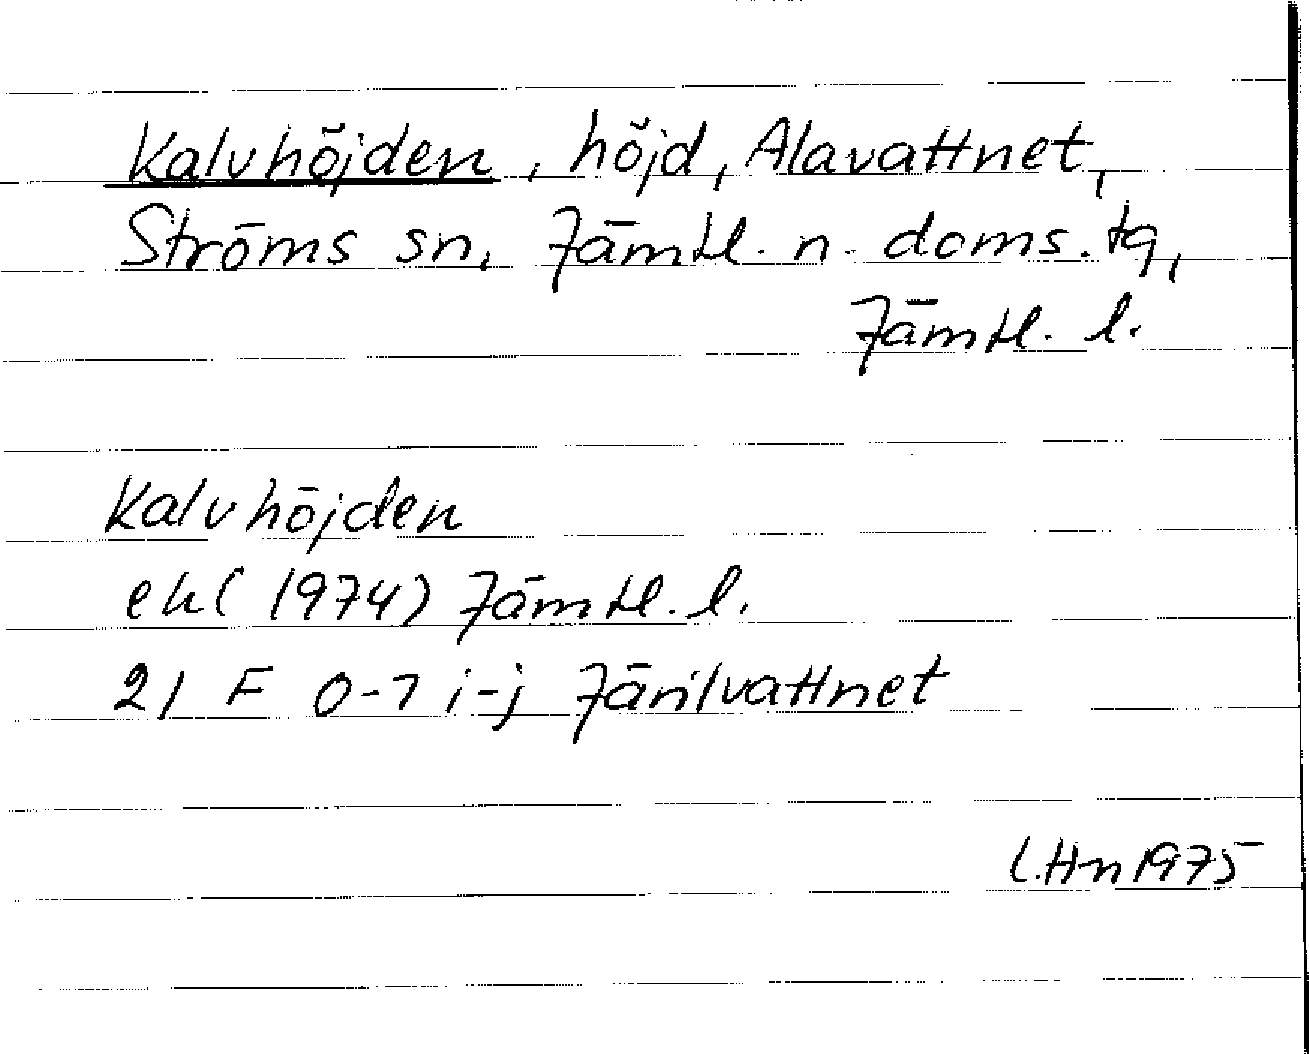 Kalvhöjden, höjd, Alavattnet,
Ströms sn, Jämtl. n. doms. tg,
Jämtl. l.
Kalvhöjden
ek (1974) Jämtl. l.
21 F 0-1 i-j Järilvattnet
L.Hn 1975